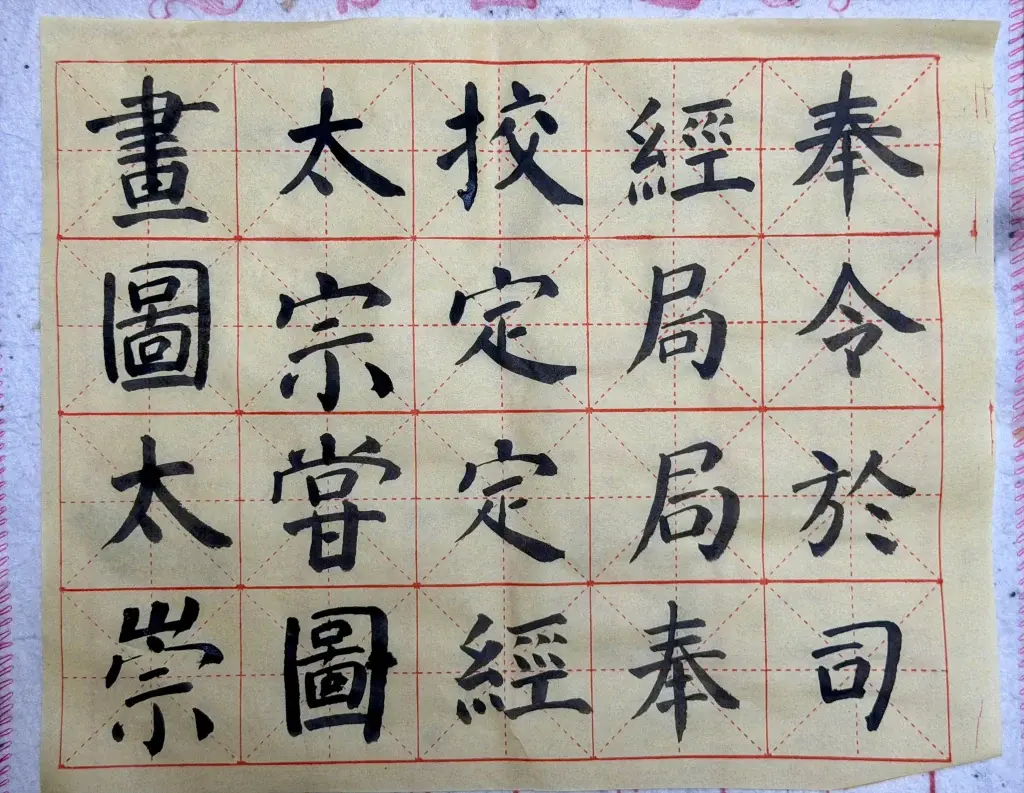 奉令於司
經局局奉
挍定定經
太宗甞圖
畫圖太崇